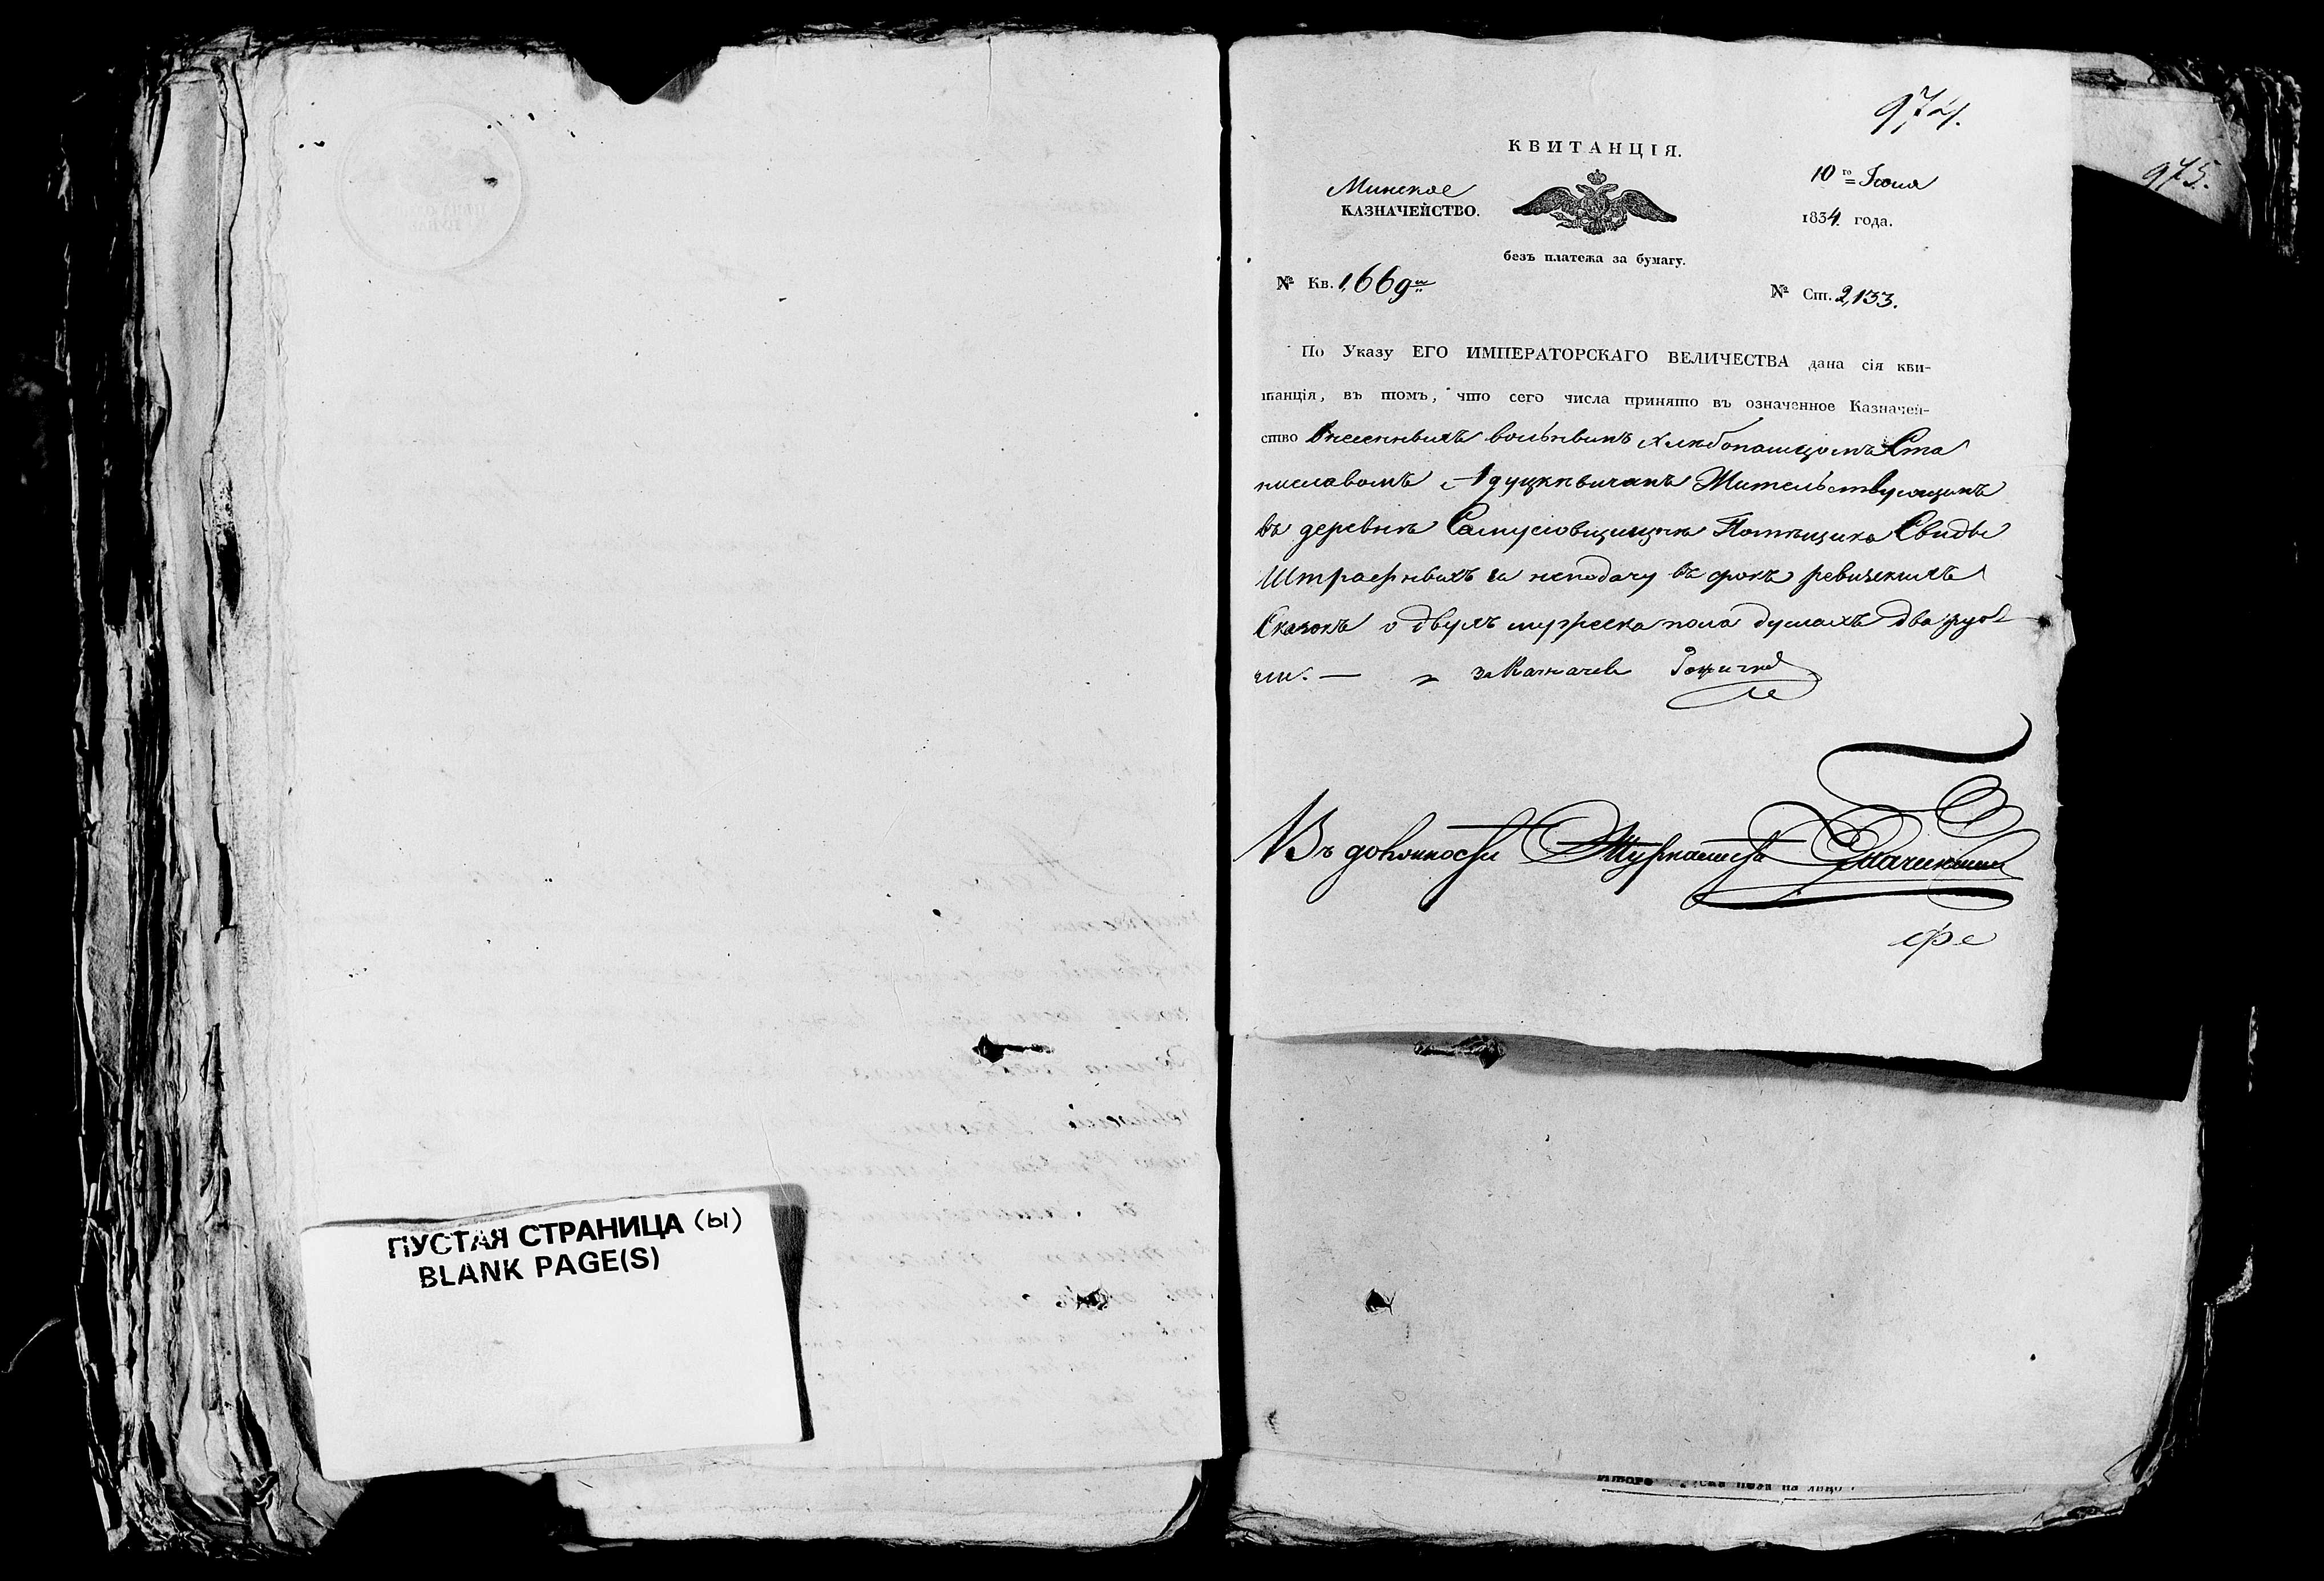 ПУСТАЯ СТРАНИЦА (Ы)
BLANK PAGE(S)
974.
975.
КВИТАНЦІЯ.
Минское
КАЗНАЧЕЙСТВО.
10го Іюня
1834 года.
безъ платежа за бумагу.
№ Кв. 1,669
№ Ст. 2,133.
По Указу ЕГО ИМПЕРАТОРСКАГО ВЕЛИЧЕСТВА дана сія кви-
танція, въ томъ, что сего числа принято въ означенное Казначей-
ство внесенныхъ вольнымъ хлебопашцомъ Ста
ниславомъ Адуцкевичемъ Жительствующимъ
въ деревне Самусіовщизне Помещика Свиды
Штрафныхъ за неподачу въ срокъ ревизскихъ
Сказокъ о двухъ мужеска пола душахъ два руб
ли. — за Казначея
Въ должности Журналиста